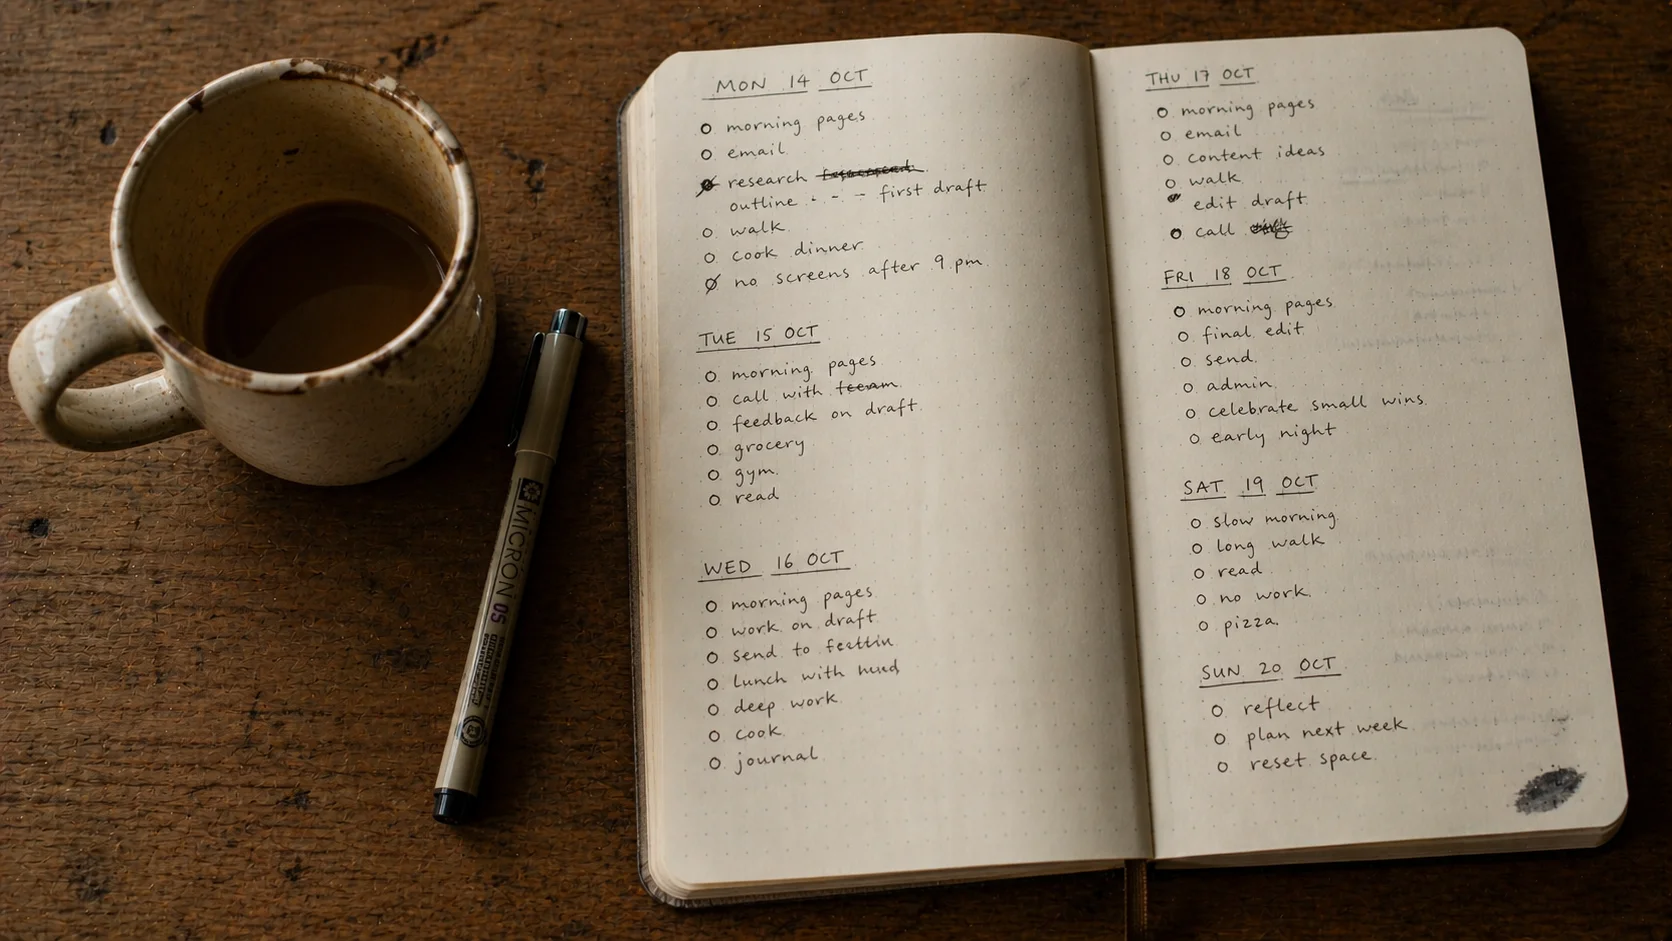 MON 14 OCT
morning pages
email
research
outline - - - first draft
walk
cook dinner
no screens after 9 pm
TUE 15 OCT
morning pages
call with
feedback on draft
grocery
gym
read
WED 16 OCT
morning pages
work on draft
send to
lunch with
deep work
cook
journal
THU 17 OCT
morning pages
email
content ideas
walk
edit draft
call
FRI 18 OCT
morning pages
final edit
send
admin
celebrate small wins
early night
SAT 19 OCT
slow morning
long walk
read
no work
pizza
SUN 20 OCT
reflect
plan next week
reset space
MICRON 05